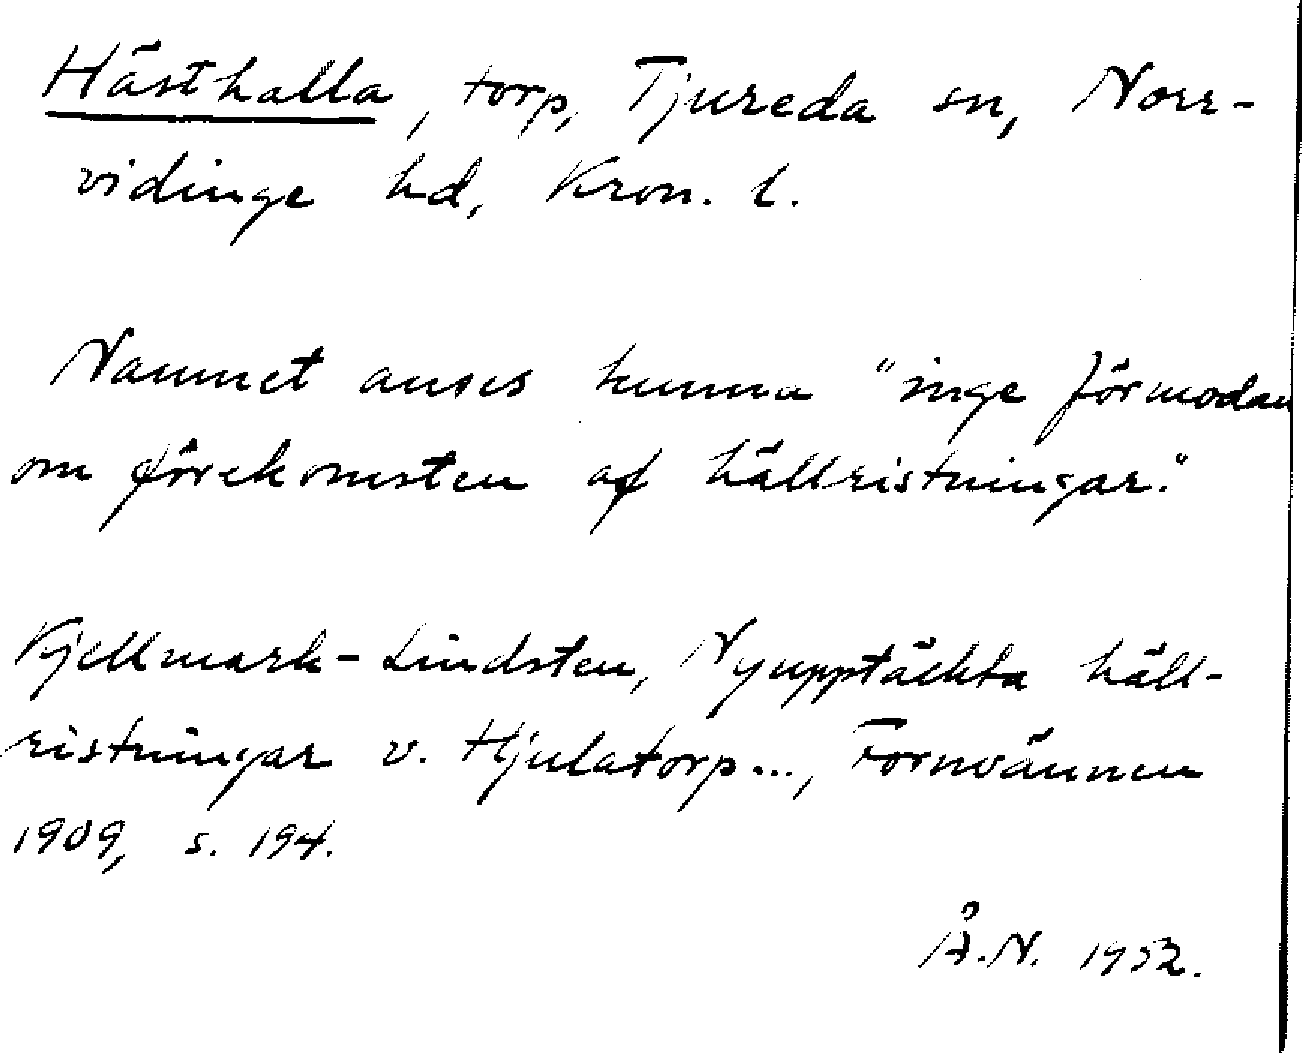 Hästhalla, torp, Tjureda sn, Norr-
vidinge hd, Kron. l.
Namnet anses kunna "inge förmodan
om förekomsten af hällristningar."
Kjellmark-Lindsten, Nyupptäckta häll-
ristningar v. Hjulatorp..., Fornvännen
1909, s. 194.
Å.N. 1952.